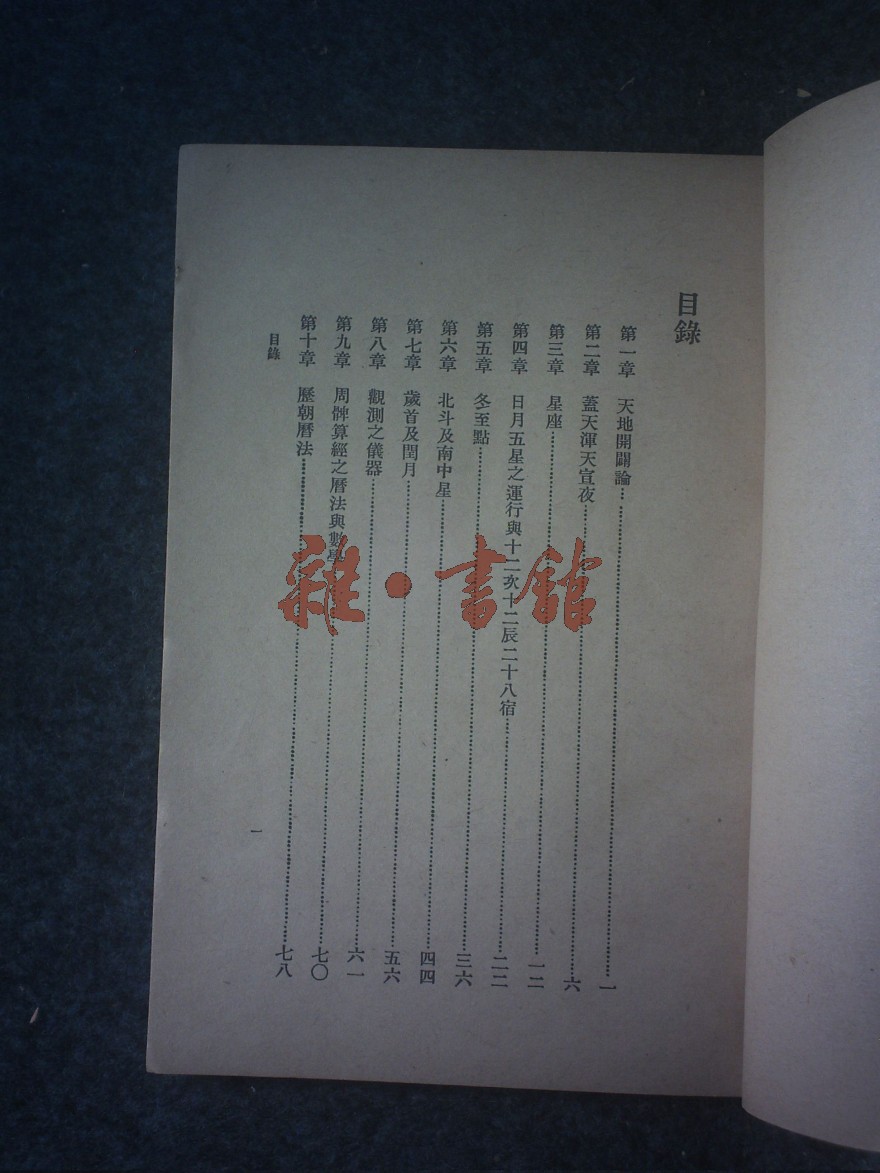 目錄
第一章 天地開闢論 一
第二章 蓋天渾天宣夜 六
第三章 星座 一二
第四章 日月五星之運行與十二次十二辰二十八宿 二二
第五章 冬至點 三六
第六章 北斗及南中星 四四
第七章 歲首及閏月 五六
第八章 觀測之儀器 六一
第九章 周髀算經之曆法與數學 七〇
第十章 歷朝曆法 七八
目錄
一
雜·書館